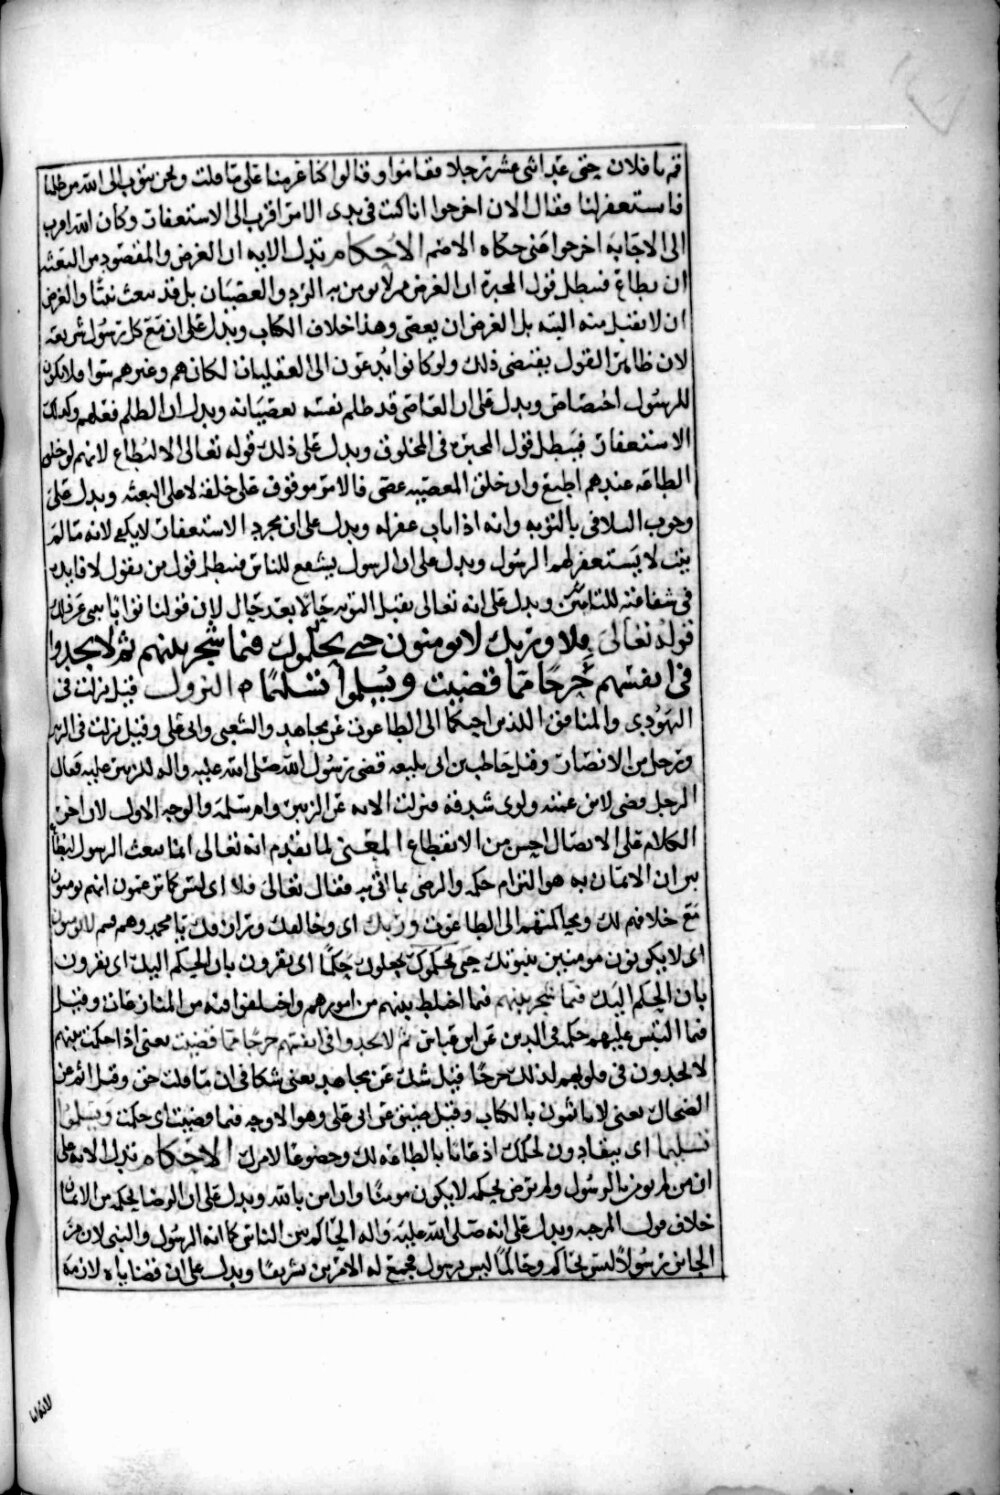 قم يا فلان حتى عد اثني عشر رجلا فقاموا وقالوا كنا عزمنا على ما قلت ونحن نتوب الى الله من ظلمنا
فاستغفر لنا فقال الان اخرجوا انا كنت في بدى الامر اقرب الى الاستغفار وكان الله اقرب
الى الاجابة اخرجوا عني حكاه الاصم الاحكام تدل الايه ان الغرض والمقصود من البعثه
ان يطاع فيبطل قول المجبرة ان الغرض من لا يومن به الرد والعصيان بل قد يبعث نبيا والغرض
ان لا يقبل منه البته بل الغرض ان يعصى وهذا خلاف الكتاب ويدل على ان مع كل رسول شريعه
لان ظاهر القول يقتضي ذلك ولو كانوا يدعون الى العقليات لكان هم وغيرهم سوا فلا يكون
للرسول اختصاص ويدل على ان العاصي قد ظلم نفسه بعصيانه ويدل ان الظلم فعلهم وكذلك
الاستغفار فيبطل قول المجبره في المخلوق ويدل على ذلك قوله تعالى الا ليطاع لانهم لو خلق
الطاعه عندهم اطيع وان خلق المعصيه عصى فالامر موقوف على خلقه لا على البعثه ويدل على
وجوب التلافي بالتوبه وانه اذا تاب غفر له ويدل على ان مجرد الاستغفار لا يكفي لانه ما لم
يتب لا يستغفر لهم الرسول ويدل على ان الرسول يشفع للناس فيبطل قول من يقول لا فايده
في شفاعته للتائبين ويدل على انه تعالى يقبل التوبه حالا بعد حال لان قولنا توابا ينبي عن ذلك
قوله تعالى فلا وربك لا يومنون حتى يحكموك فيما شجر بينهم ثم لا يجدوا
في انفسهم حرجا مما قضيت ويسلموا تسليما النزول قيل نزلت في
اليهودي والمنافق اللذين احتكما الى الطاغوت عن مجاهد والشعبي وابي علي وقيل نزلت في الزبير
ورجل من الانصار وقيل حاطب بن ابي بلتعه قضى رسول الله صلى الله عليه واله للزبير عليه فقال
الرجل قضى لابن عمته ولوى شدقه فنزلت الايه عن الزبير وام سلمة والوجه الاول لان اجرى
الكلام على الاتصال احسن من الانقطاع المعنى لما تقدم انه تعالى انما يبعث الرسول ليطاع
بين ان الايمان به هو التزام حكمه والرضى بما اتى به فقال تعالى فلا اي ليس كما تزعمون انهم يومنون
مع خلافهم لك ومحاكمتهم الى الطاغوت وربك اي وخالقك ورازقك يا محمد وهم قسم لا يومنون
اي لا يكونون مومنين بنبوتك حتى يحكموك يجعلوك حكما اي يقرون بان الحكم اليك اي يقرون
بان الحكم اليك فيما شجر بينهم فيما اختلط بينهم من امورهم واختلفوا فيه من المنازعات وقيل
فيما التبس عليهم حكمه في الدين عن ابن عباس ثم لا يجدوا في انفسهم حرجا مما قضيت يعني اذا حكمت بينهم
لا يجدون في قلوبهم لذلك حرجا قيل شك عن مجاهد يعني شكا في ان ما قلت حق وقيل اثم عن
الضحاك يعني لا ياثمون بالكتاب وقيل ضيق عن ابي علي وهو الاوجه فيما قضيت اي حكمت ويسلموا
تسليما اي ينقادون لحكمك اذعانا بالطاعه لك وخضوعا لامرك الاحكام تدل الايه على
ان من لم يومن بالرسول ولم يرض بحكمه لا يكون مومنا وان امن بالله ويدل على ان الرضا بحكمه من الايمان
خلاف قول المرجيه ويدل على انه صلى الله عليه واله الحاكم بين الناس كما انه الرسول والنبي لان من
الجائز رسولا ليس بحاكم وحاكما ليس برسول فجمع له الامرين تشريفا ويدل على ان قضاياه لازمه
لانها